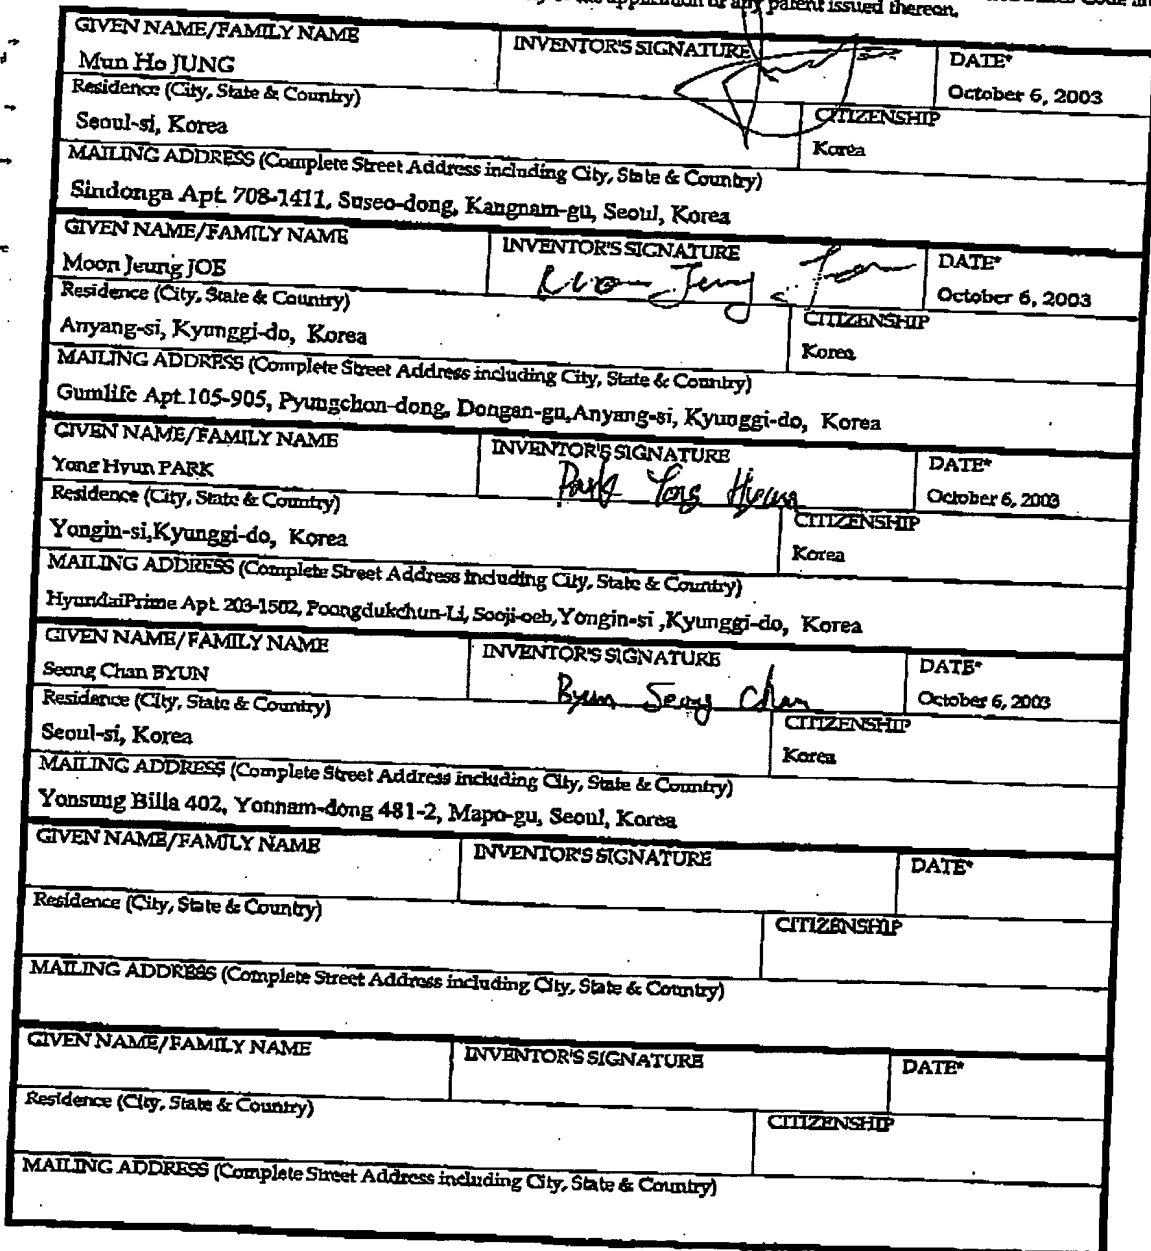 application or any patent issued thereon.
GIVEN NAME/FAMILY NAME
Mun Ho JUNG
INVENTOR'S SIGNATURE
DATE*
October 6, 2003
Residence (City, State & Country)
Seoul-si, Korea
CITIZENSHIP
Korea
MAILING ADDRESS (Complete Street Address including City, State & Country)
Sindonga Apt. 708-1411, Suseo-dong, Kangnam-gu, Seoul, Korea
GIVEN NAME/FAMILY NAME
Moon Jeung JOE
INVENTOR'S SIGNATURE
DATE*
October 6, 2003
Residence (City, State & Country)
Anyang-si, Kyunggi-do, Korea
CITIZENSHIP
Korea
MAILING ADDRESS (Complete Street Address including City, State & Country)
Gumlife Apt.105-905, Pyungchon-dong, Dongan-gu,Anyang-si, Kyunggi-do, Korea
GIVEN NAME/FAMILY NAME
Yong Hyun PARK
INVENTOR'S SIGNATURE
Park Yong Hyun
DATE*
October 6, 2003
Residence (City, State & Country)
Yongin-si,Kyunggi-do, Korea
CITIZENSHIP
Korea
MAILING ADDRESS (Complete Street Address including City, State & Country)
HyundaiPrime Apt. 203-1502, Poongdukchun-Li, Sooji-oeb,Yongin-si ,Kyunggi-do, Korea
GIVEN NAME/FAMILY NAME
Seong Chan BYUN
INVENTOR'S SIGNATURE
Byun Seong Chan
DATE*
October 6, 2003
Residence (City, State & Country)
Seoul-si, Korea
CITIZENSHIP
Korea
MAILING ADDRESS (Complete Street Address including City, State & Country)
Yonsung Billa 402, Yonnam-dong 481-2, Mapo-gu, Seoul, Korea
GIVEN NAME/FAMILY NAME
INVENTOR'S SIGNATURE
DATE*
Residence (City, State & Country)
CITIZENSHIP
MAILING ADDRESS (Complete Street Address including City, State & Country)
GIVEN NAME/FAMILY NAME
INVENTOR'S SIGNATURE
DATE*
Residence (City, State & Country)
CITIZENSHIP
MAILING ADDRESS (Complete Street Address including City, State & Country)